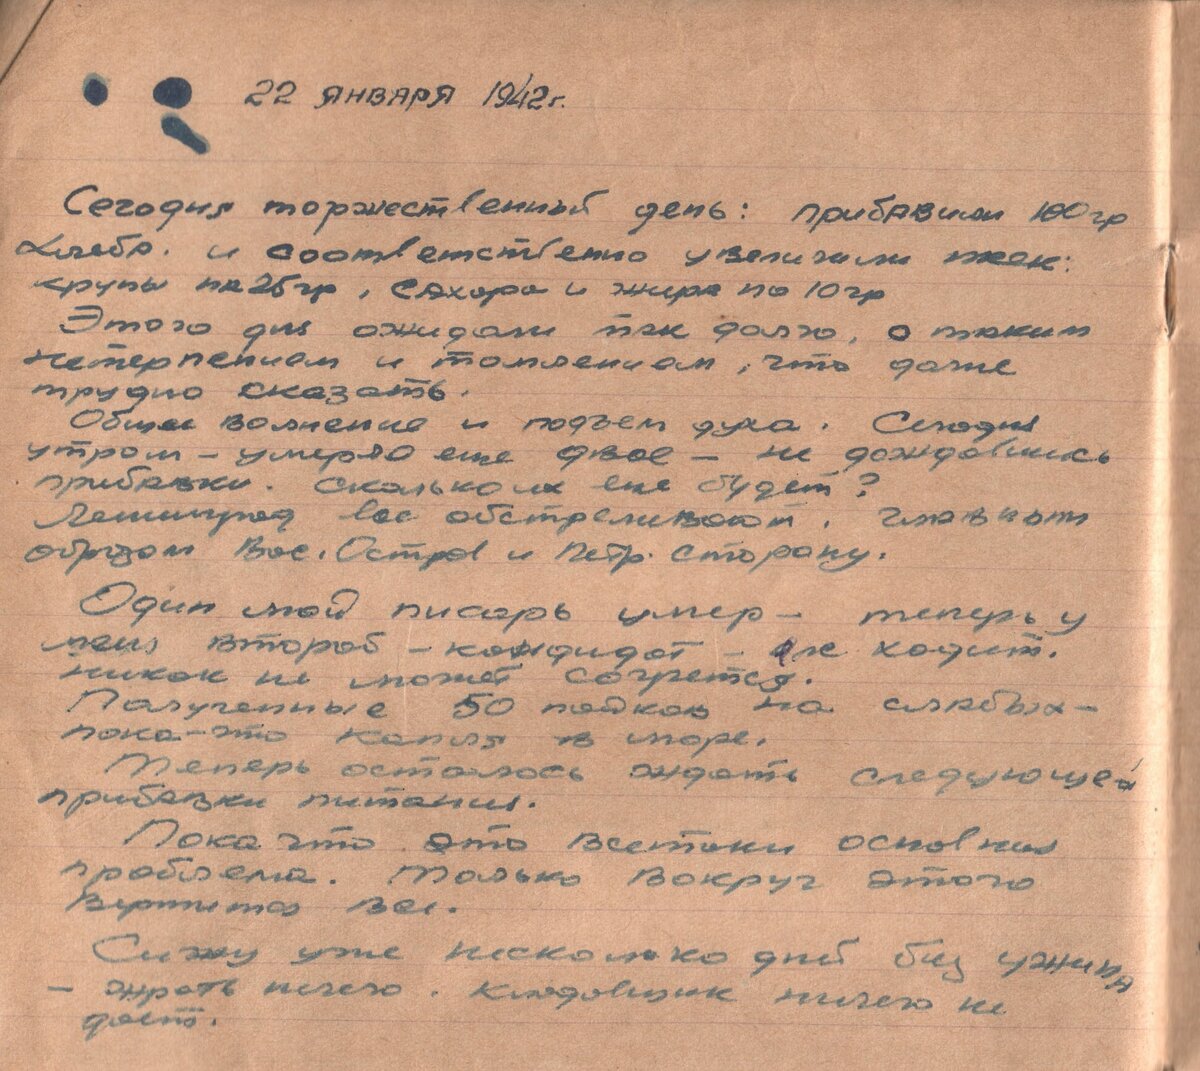 22 ЯНВАРЯ 1942г.
Сегодня торжественный день: прибавили 100гр
хлеба. и соответственно увеличили паек:
крупы на 25гр, сахара и жира по 10гр
Этого дня ожидали так долго, с таким
нетерпением и томлением, что даже
трудно сказать.
Общее волнение и подъем духа. Сегодня
утром – умерло еще двое – не дождавшись
прибавки. Сколько их еще будет?
Ленинград все обстреливают. Главным
образом Вас. Остров и Петр. сторону.
Один мой писарь умер – теперь у
меня второй – кандидат – еле ходит.
никак не может согреться.
Полученные 50 пайков на слабых –
пока-что капля в море.
Теперь осталось ждать следующей
прибавки питания.
Пока что это всетаки основная
проблема. Только вокруг этого
вертится все.
Сижу уже несколько дней без ужина
– жрать нечего. Кладовщик ничего не
дает.